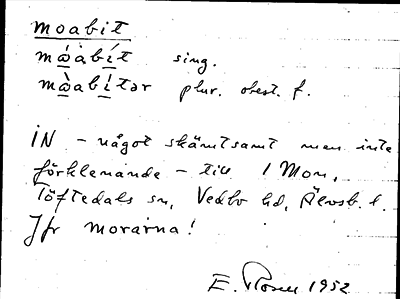 moabit
mɷ́àbi̱t sing.
mɷ̀abi̱tər plur. obest. f.
IN – något skämtsamt men inte
förklenande – till 1 Mon,
Töftedals sn, Vedbo hd, Älvsb. l.
Jfr morarna!
E. Rosen 1952